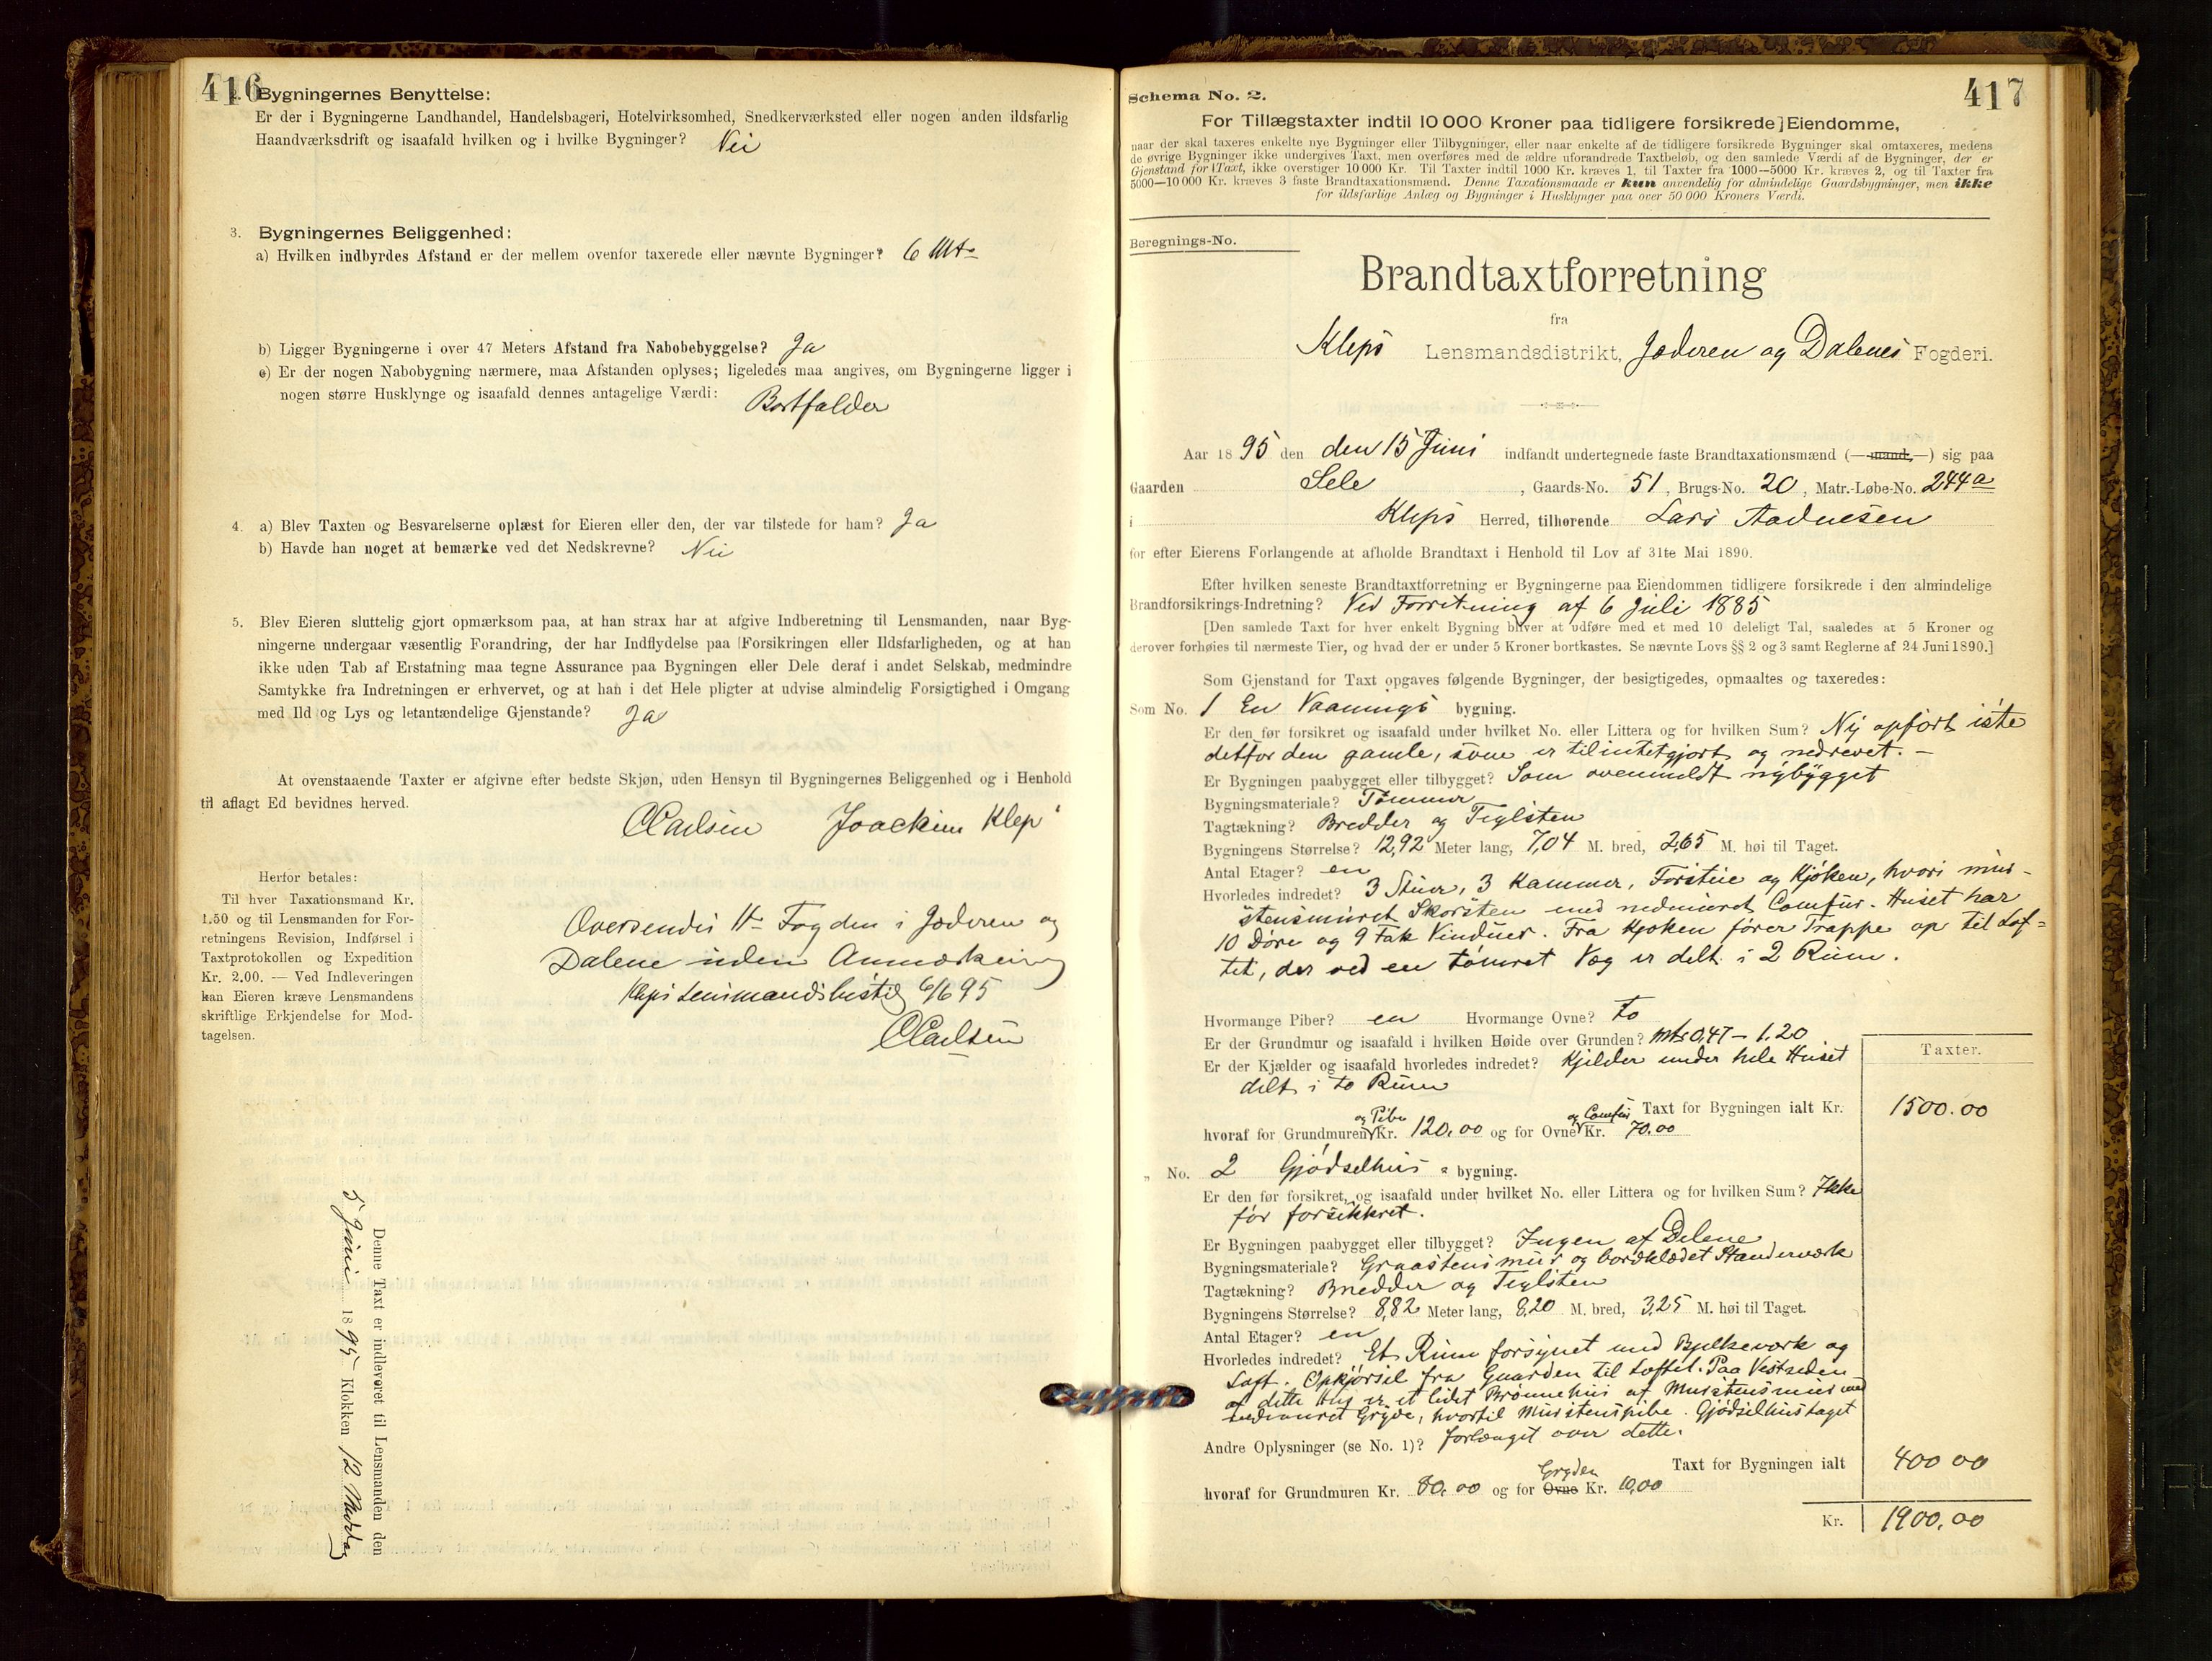 416
2. Bygningernes Benyttelse:
Er der i Bygningerne Landhandel, Handelsbageri, Hotelvirksomhed, Snedkerværksted eller nogen anden ildsfarlig
Haandværksdrift og isaafald hvilken og i hvilke Bygninger? Nei
3. Bygningernes Beliggenhed:
a) Hvilken indbyrdes Afstand er der mellem ovenfor taxerede eller nævnte Bygninger? 6 Mt.
b) Ligger Bygningerne i over 47 Meters Afstand fra Nabobebyggelse? Ja
c) Er der nogen Nabobygning nærmere, maa Afstanden oplyses; ligeledes maa angives, om Bygningerne ligger i
nogen større Husklynge og isaafald dennes antagelige Værdi: Bortfalder
4. a) Blev Taxten og Besvarelserne oplæst for Eieren eller den, der var tilstede for ham? Ja
b) Havde han noget at bemærke ved det Nedskrevne? Nei
5. Blev Eieren sluttelig gjort opmærksom paa, at han strax har at afgive Indberetning til Lensmanden, naar Byg-
ningerne undergaar væsentlig Forandring, der har Indflydelse paa Forsikringen eller Ildsfarligheden, og at han
ikke uden Tab af Erstatning maa tegne Assurance paa Bygningen eller Dele deraf i andet Selskab, medmindre
Samtykke fra Indretningen er erhvervet, og at han i det Hele pligter at udvise almindelig Forsigtighed i Omgang
med Ild og Lys og letantændelige Gjenstande? Ja
At ovenstaaende Taxter er afgivne efter bedste Skjøn, uden Hensyn til Bygningernes Beliggenhed og i Henhold
til aflagt Ed bevidnes herved.
CCarlsen Joackim Klep
Herfor betales:
Til hver Taxationsmand Kr.
1.50 og til Lensmanden for For-
retningens Revision, Indførsel i
Taxtprotokollen og Expedition
Kr. 2.00. — Ved Indleveringen
kan Eieren kræve Lensmandens
skriftlige Erkjendelse for Mod-
tagelsen.
Oversendes Hr Fogden i Jæderen og
Dalene uden Anmærkning
Kleps Lensmandsbestil 6/6 95
CCarlsen
Denne Taxt er indleveret til Lensmanden den
5 Juni 1895 Klokken 12 Middag
417
Schema No. 2.
For Tillægstaxter indtil 10 000 Kroner paa tidligere forsikrede] Eiendomme,
naar der skal taxeres enkelte nye Bygninger eller Tilbygninger, eller naar enkelte af de tidligere forsikrede Bygninger skal omtaxeres, medens
de øvrige Bygninger ikke undergives Taxt, men overføres med de ældre uforandrede Taxtbeløb, og den samlede Værdi af de Bygninger, der er
Gjenstand for Taxt, ikke overstiger 10 000 Kr. Til Taxter indtil 1000 Kr. kræves 1, til Taxter fra 1000—5000 Kr. kræves 2, og til Taxter fra
5000—10 000 Kr. kræves 3 faste Brandtaxationsmænd. Denne Taxationsmaade er kun anvendelig for almindelige Gaardsbygninger, men ikke
for ildsfarlige Anlæg og Bygninger i Husklynger paa over 50 000 Kroners Værdi.
Beregnings-No.
Brandtaxtforretning
fra
Kleps Lensmandsdistrikt, Jæderen og Dalenes Fogderi.
Aar 1895 den den 15 Juni indfandt undertegnede faste Brandtaxationsmænd (—mand,—) sig paa
Gaarden Sele, Gaards-No. 51, Brugs-No. 20, Matr.-Løbe-No. 244a
i Kleps Herred, tilhørende Lars Aadnesen
for efter Eierens Forlangende at afholde Brandtaxt i Henhold til Lov af 31te Mai 1890.
Efter hvilken seneste Brandtaxtforretning er Bygningerne paa Eiendommen tidligere forsikrede i den almindelige
Brandforsikrings-Indretning? Ved Forretning af 6 Juli 1885
[Den samlede Taxt for hver enkelt Bygning bliver at udføre med et med 10 deleligt Tal, saaledes at 5 Kroner og
derover forhøies til nærmeste Tier, og hvad der er under 5 Kroner bortkastes. Se nævnte Lovs §§ 2 og 3 samt Reglerne af 24 Juni 1890.]
Som Gjenstand for Taxt opgaves følgende Bygninger, der besigtigedes, opmaaltes og taxeredes:
Som No. 1 En Vaanings bygning.
Er den før forsikret og isaafald under hvilket No. eller Littera og for hvilken Sum? Ny opført iste
detfor den gamle, som er tilintetgjort og nedrevet. —
Er Bygningen paabygget eller tilbygget? Som ovenmeldt nybygget
Bygningsmateriale? Tømmer
Tagtækning? Bredder og Teglsten
Bygningens Størrelse? 12,92 Meter lang, 7,04 M. bred, 2,65 M. høi til Taget.
Antal Etager? en
Hvorledes indredet? 3 Stuer, 3 Kammer, Forstue og Kjøken, hvori mur-
stensmuret Skorsten med nedmuret Comfur. Huset har
10 Døre og 9 Fak Vinduer. Fra Kjøken fører Trappe op til Lof-
tet, der ved en tømret Væg er delt i 2 Rum.
Hvormange Piber? en Hvormange Ovne? to
Er der Grundmur og isaafald i hvilken Høide over Grunden? mtr 0,47 - 1.20
Er der Kjælder og isaafald hvorledes indredet? Kjelder under hele Huset
delt i to Rum
Taxter.
Taxt for Bygningen ialt Kr. 1500.00
hvoraf for Grundmuren og Pibe Kr. 120.00 og for Ovne og Comfur Kr. 70.00
" No. 2 Gjødselhus bygning.
Er den før forsikret, og isaafald under hvilket No. eller Littera og for hvilken Sum? Ikke
før forsikkret.
Er Bygningen paabygget eller tilbygget? Ingen af Delene
Bygningsmateriale? Graastensmur og bordklædet Standerværk
Tagtækning? Bredder og Teglsten
Bygningens Størrelse? 8,82 Meter lang, 8,20 M. bred, 3,25 M. høi til Taget.
Antal Etager? en
Hvorledes indredet? Et Rum forsynet med Bjelkeværk og
Loft. Opkjørsel fra Gaarden til Loftet. Paa Vestsiden
af dette Hus er et lidet Brønnehus af Murstensmur med
nedmuret Gryde, hvortil Murstenspibe. Gjødselhustaget
Andre Oplysninger (se No. 1)? forlænget over dette.
Taxt for Bygningen ialt 400 00
hvoraf for Grundmuren Kr. 80.00 og for Ovne Gryden Kr. 10,00
Kr. 1900,00